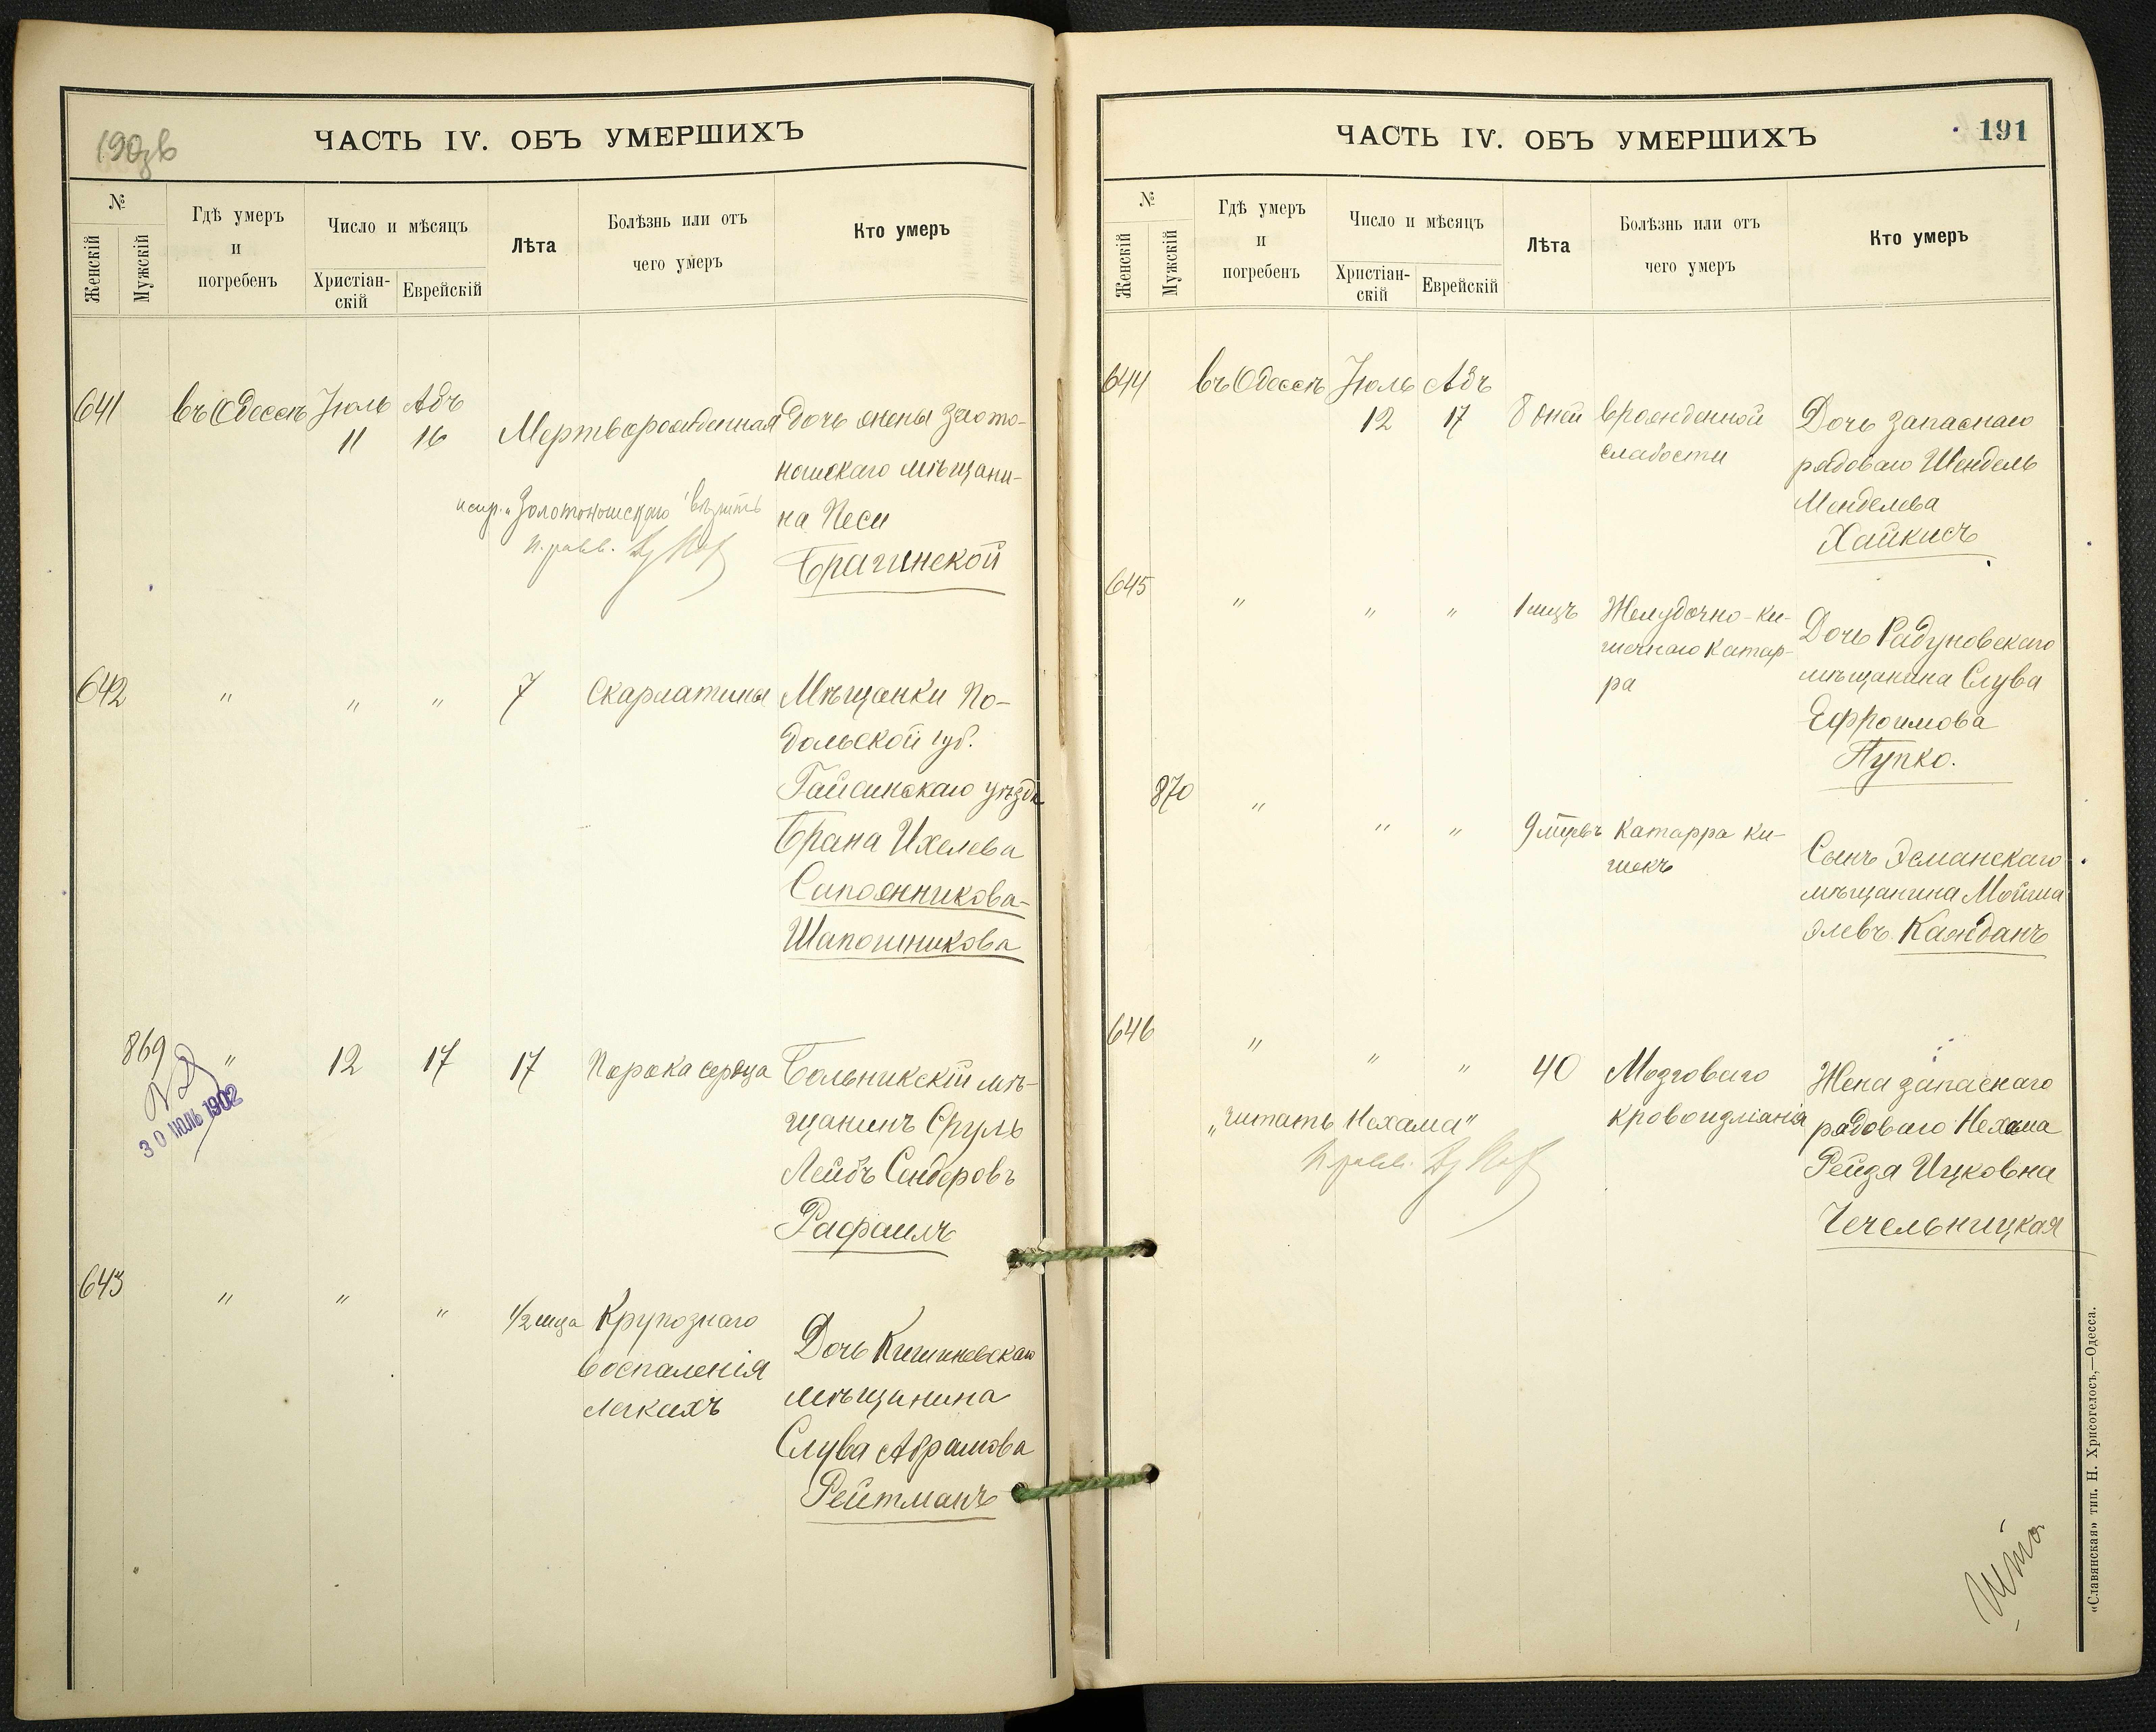 190 зв
ЧАСТЬ IV. ОБЪ УМЕРШИХЪ
№
Женскій
Мужскій
Гдѣ умеръ
и
погребенъ
Число и мѣсяцъ
Христіан-
скій
Еврейскій
Лѣта
Болѣзнь или отъ
чего умеръ
Кто умеръ
641 въ Одессѣ Іюль Абъ
11 16 Мертворожденная Дочь жены Золото-
ношскаго мѣщани-
на Песи
Брагинской
испр. „Золотоношскаго" вѣрить
п. равв.
642 " " " 7 Скарлатины Мѣщанки По-
дольской губ.
Гайсинскаго уѣзда
Брана Ихелева
Сапожникова-
Шапошникова
869 " 12 17 17 Порока сердца Больникскій мѣ-
щанинъ Сруль
Лейбъ Сендеровъ
Рафаилъ
30 ІЮЛЬ 1902
643 " " " 1/2 мца Крупознаго
воспаленія
легкихъ
Дочь Кишиневскаго
мѣщанина
Слува Абрамова
Рейтманъ
ЧАСТЬ IV. ОБЪ УМЕРШИХЪ
191
№
Женскій
Мужскій
Гдѣ умеръ
и
погребенъ
Число и мѣсяцъ
Христіан-
скій
Еврейскій
Лѣта
Болѣзнь или отъ
чего умеръ
Кто умеръ
644 въ Одессѣ Іюль Абъ
12 17 8 дней врожденной
слабости
Дочь запаснаго
рядоваго Шендель
Менделева
Хайкисъ
645 " " " 1 мцъ Желудочно-ки-
шечнаго катар-
ра
Дочь Радуновскаго
мѣщанина Слува
Ефроимова
Пупко.
870 " " " 9 мцевъ Катарра ки-
шекъ
Сынъ Эсманскаго
мѣщанина Мойша
Элевъ Кажданъ
646 " " " 40 Мозговаго
кровоизліанія
Жена запаснаго
рядоваго Нехама
Рейзя Ицковна
Чечельницкая
„читать Нехама"
п. равв.
«Славянская» тип. Н. Хрисогелосъ,—Одесса.